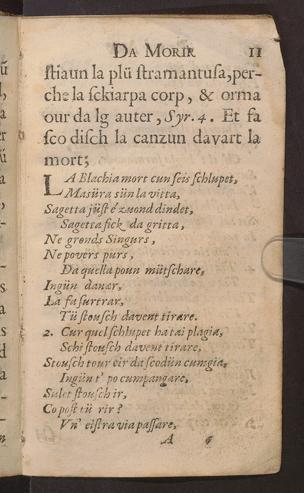 DA MORIR 11
ſtiaun la plü ſtramantuſa, per-
che la ſckiarpa corp, & orma
our da lg auter, Syr. 4. Et ſa
ſco diſch la canzun davart la
mort;
LA Blachia mort cun ſeis ſchlupet,
Maſüra sün la vitta,
Sagetta jüſt è zuond dindet,
Sagetta fick da gritta,
Ne gronds Singurs,
Ne povers purs,
Da quella poun mütſchare,
Ingün danær,
La fa ſurtrar,
Tü ſtouſch davent tirare.
2. Cur quel ſchlupet ha tai plagia,
Schi ſtouſch davent tirare,
Stouſch tour eir da ſcodün cumgia,
Ingün t' po cumpangare,
Sulet ſtouſch ir,
Co poſt tü rir?
Vn' eiſtra via paſſare,
A 6